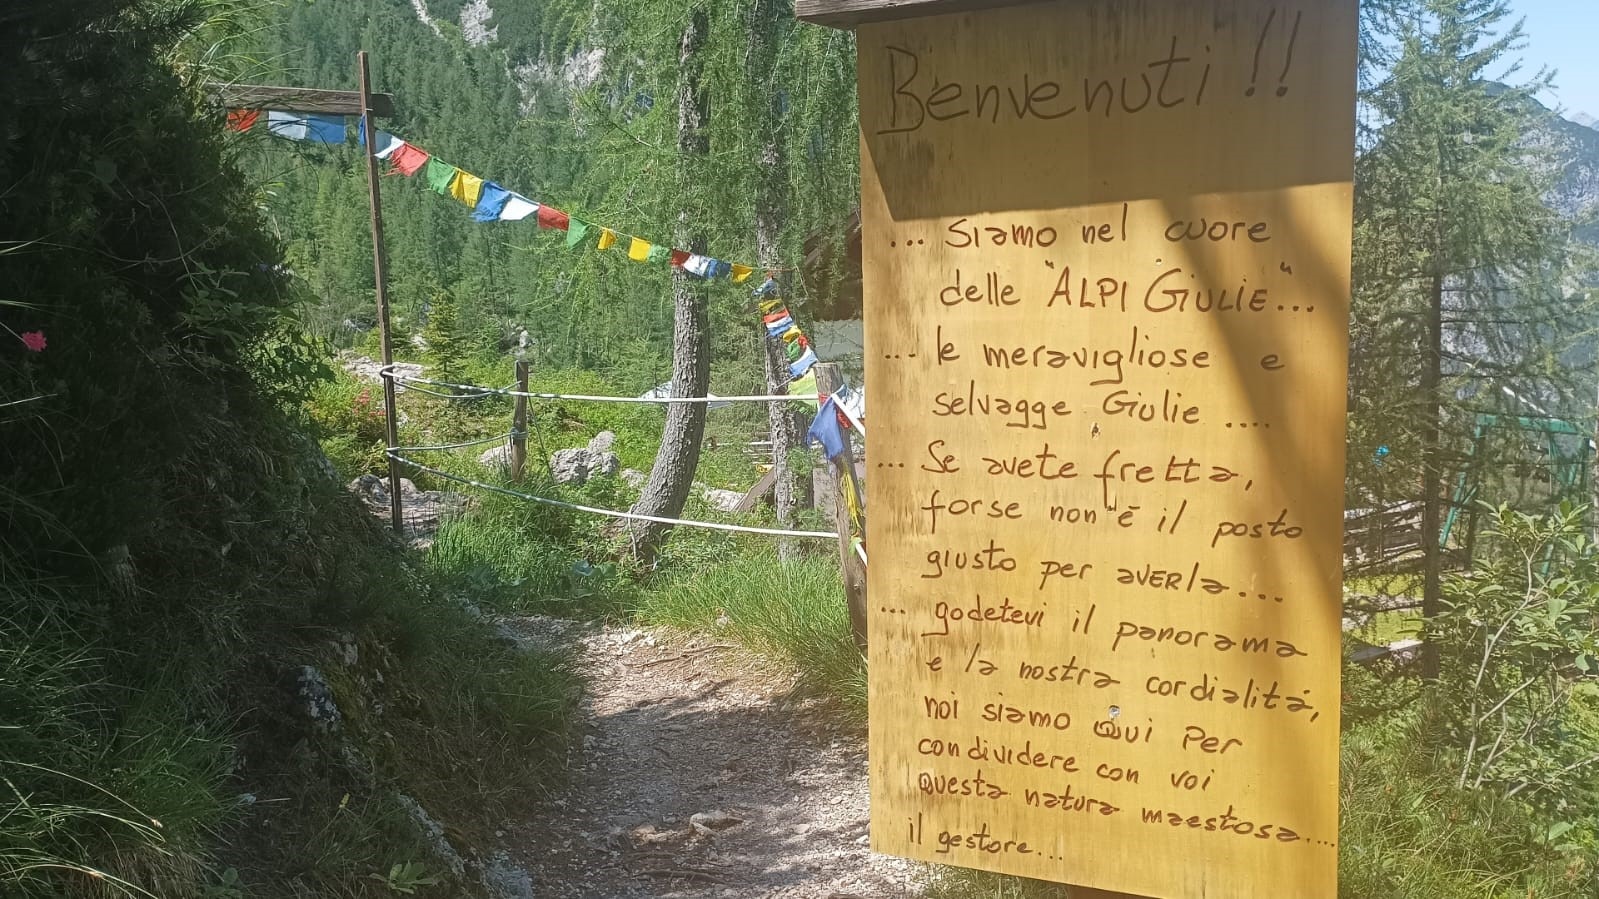 Benvenuti!!
... Siamo nel cuore
delle "ALPI GIULIE"...
... le meravigliose e
selvagge Giulie ....
... Se avete fretta,
forse non "è il posto
giusto per aVERla...
... godetevi il panorama
e la nostra cordialitá,
noi siamo Qui Per
condividere con voi
Questa natura maestosa....
il gestore...